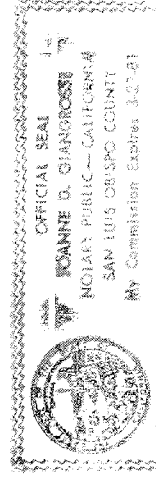 OFFICIAL SEAL
JOANNE D. GIANGROSSI
NOTARY PUBLIC — CALIFORNIA
SAN LUIS OBISPO COUNTY
My Commission Expires